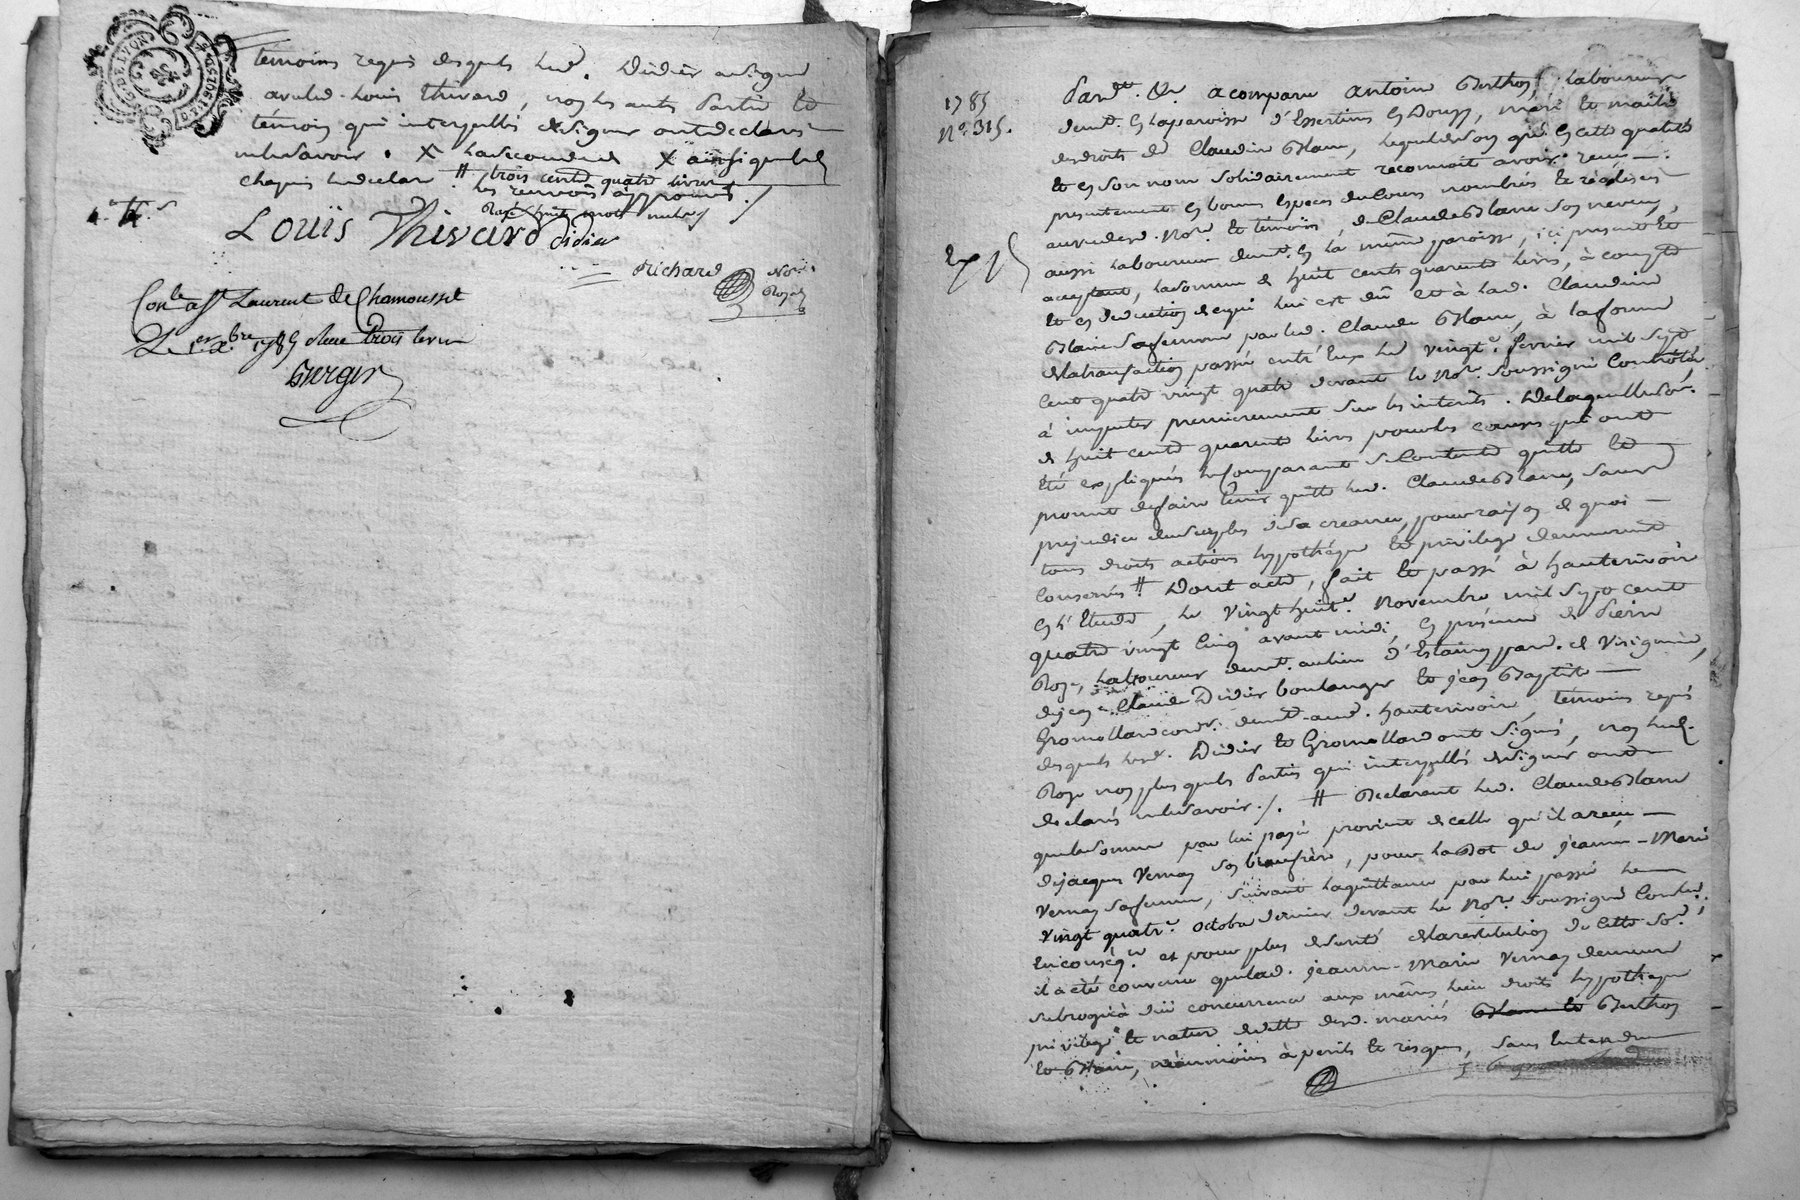 G. DE LYON
témoins requis desquels led. Didier a signé
avec led. Louis Thivard, non les autres parties et
témoin qui interpellés de signer ont déclaré
ne le savoir. X X ainsi que led.
# trois cents quatre livres
les renvois approuvés
Rayé huit mots nuls ./.
Louïs Thivard didier
Richard Not.
Royal
Con.le à S.t Laurent de Chamousset
Le 1.er X.bre 1785 trois
Berger
1785
N.o 315.
Pard.t &c. a comparu antoine Berthoy laboureur
demt. en la paroisse d'Essertines en Donzy, mari et maitre
des droits de Claudine Blanc, lequel de son gré en cette qualité
et en son nom solidairement reconnoit avoir reçu —
présentement en bonnes espèces de cours nombrées et réalisées
au vu desd. No.re et témoins, de Claude Blanc son neveu,
aussi laboureur demt. en la même paroisse, ici présent et
acceptant, la somme de huit cents quarante livres, à compte
et en déduction de ce qui lui est dû et à lad. Claudine
Blanc sa femme par led. Claude Blanc, à la forme
de la transaction passée entr'eux le vingt.e fevrier mil sept
cent quatre vingt quatre devant le No.re soussigné controlée,
à imputer premierement sur les interets. De laquelle so.e
de huit cents quarante livres pour les causes qui ont
été expliquées le comparant se contente quitte et
promet de faire tenir quitte led. Claude Blanc, sans
préjudice du surplus de sa créance, pour raison de quoi —
tous droits actions hypothéque et privilege demeurent
conservés # Dont acte, fait et passé à hauterivoir
en l'Etude, le vingt huit.e Novembre mil sept cent
quatre vingt cinq avant midi, en présence de Pierre
Roze, laboureur demt. au lieu d'Estaing par. de Virigneux,
de Claude Didier boulanger et jean Baptiste —
Gromollard cord.r demt. aud. hauterivoir, témoins requis
desquels lesd. Didier et Gromollard ont signé, non led.
Roze non plus que les parties qui interpellés de signer ont
déclaré ne le savoir ./. # Declarant led. Claude Blanc
que la somme par lui payée provient de celle qu'il a reçu —
de jacques Vernay son beaufrère, pour la dot de jeanne-Marie
Vernay sa femme, suivant la quittance par lui passée le —
vingt quatr.e octobre dernier devant le No.re soussigné Con.lée.
En conseq.ce et pour plus de sureté de la restitution de cette so.e,
il a été convenu que lad. jeanne-Marie Vernay demeure
subrogée à dûe concurrence aux mêmes lieu droits hypotheque
privilege et nature de dette desd. mariés Blanc et Berthoy
et Blanc, néanmoins à perils et risques, sans entendre